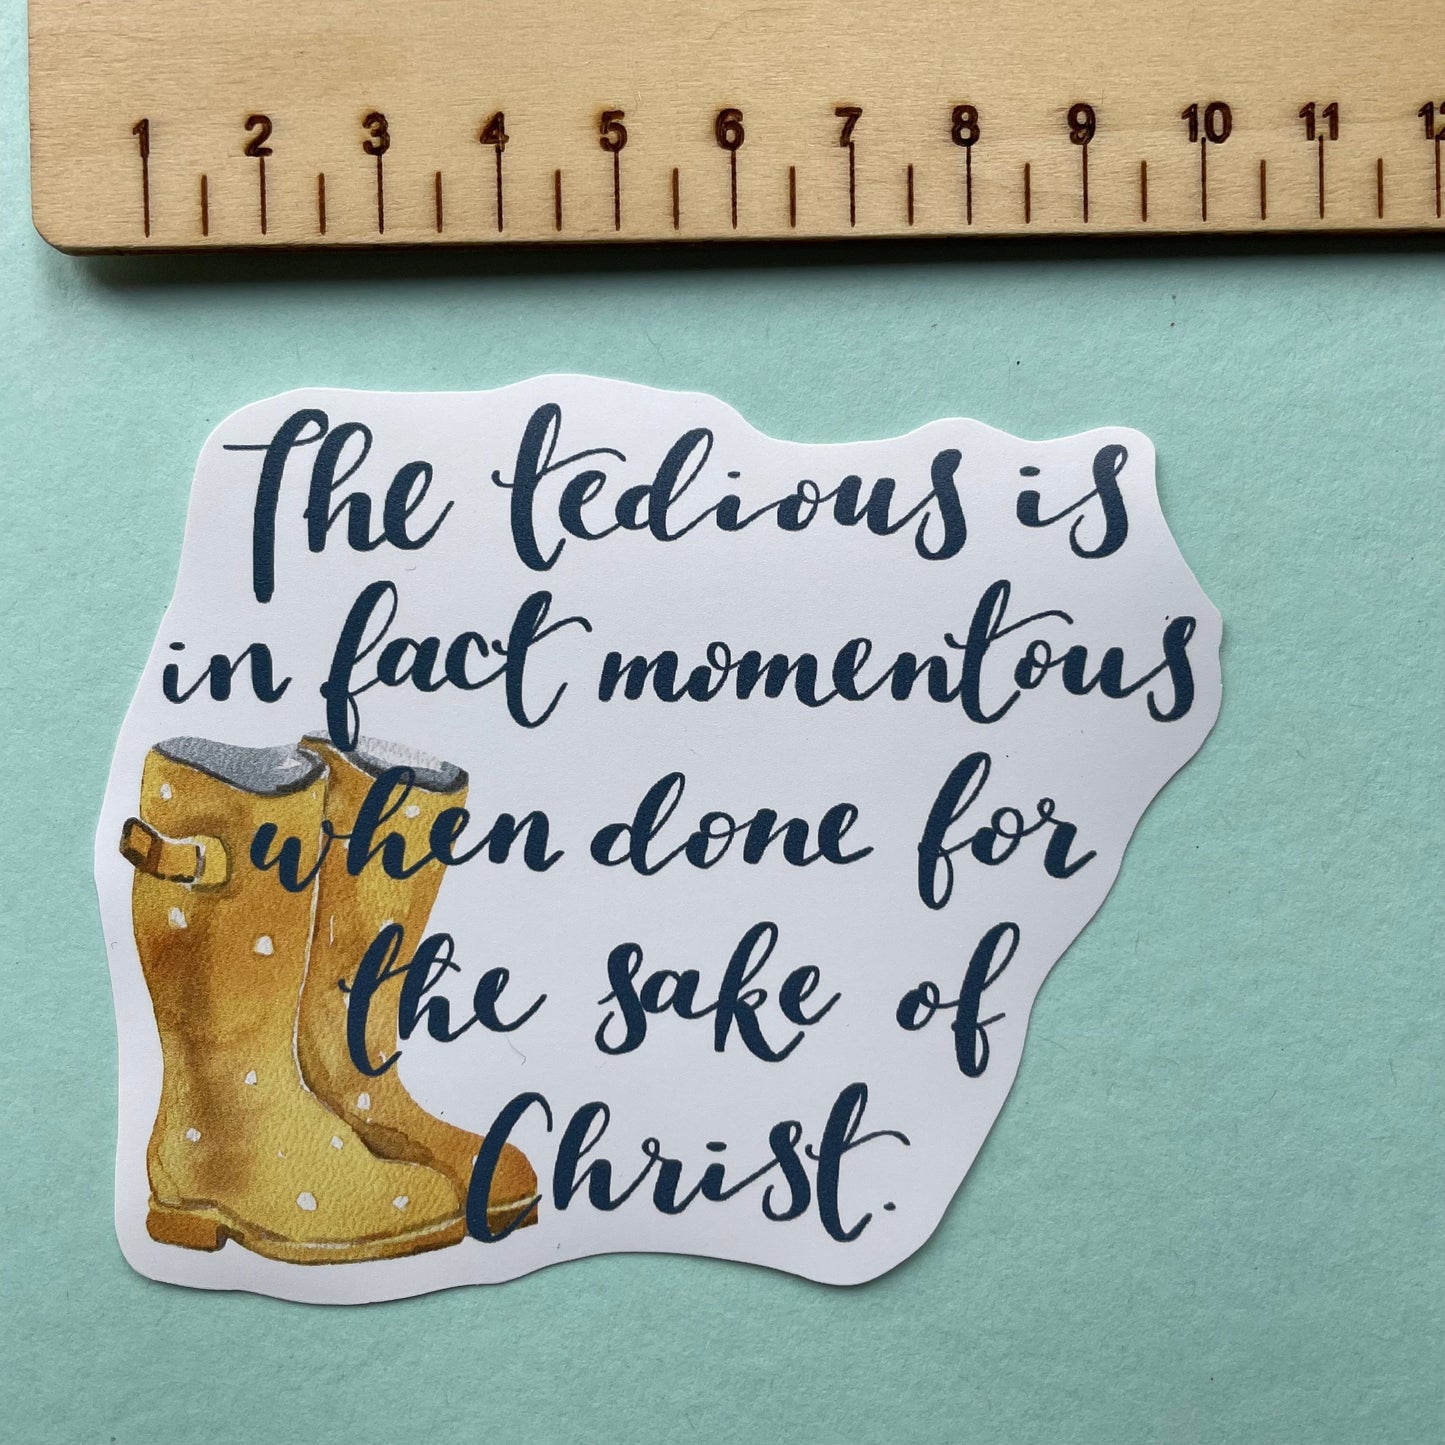 1 2 3 4 5 6 7 8 9 10 11 12
The tedious is
in fact momentous
when done for
the sake of
Christ.